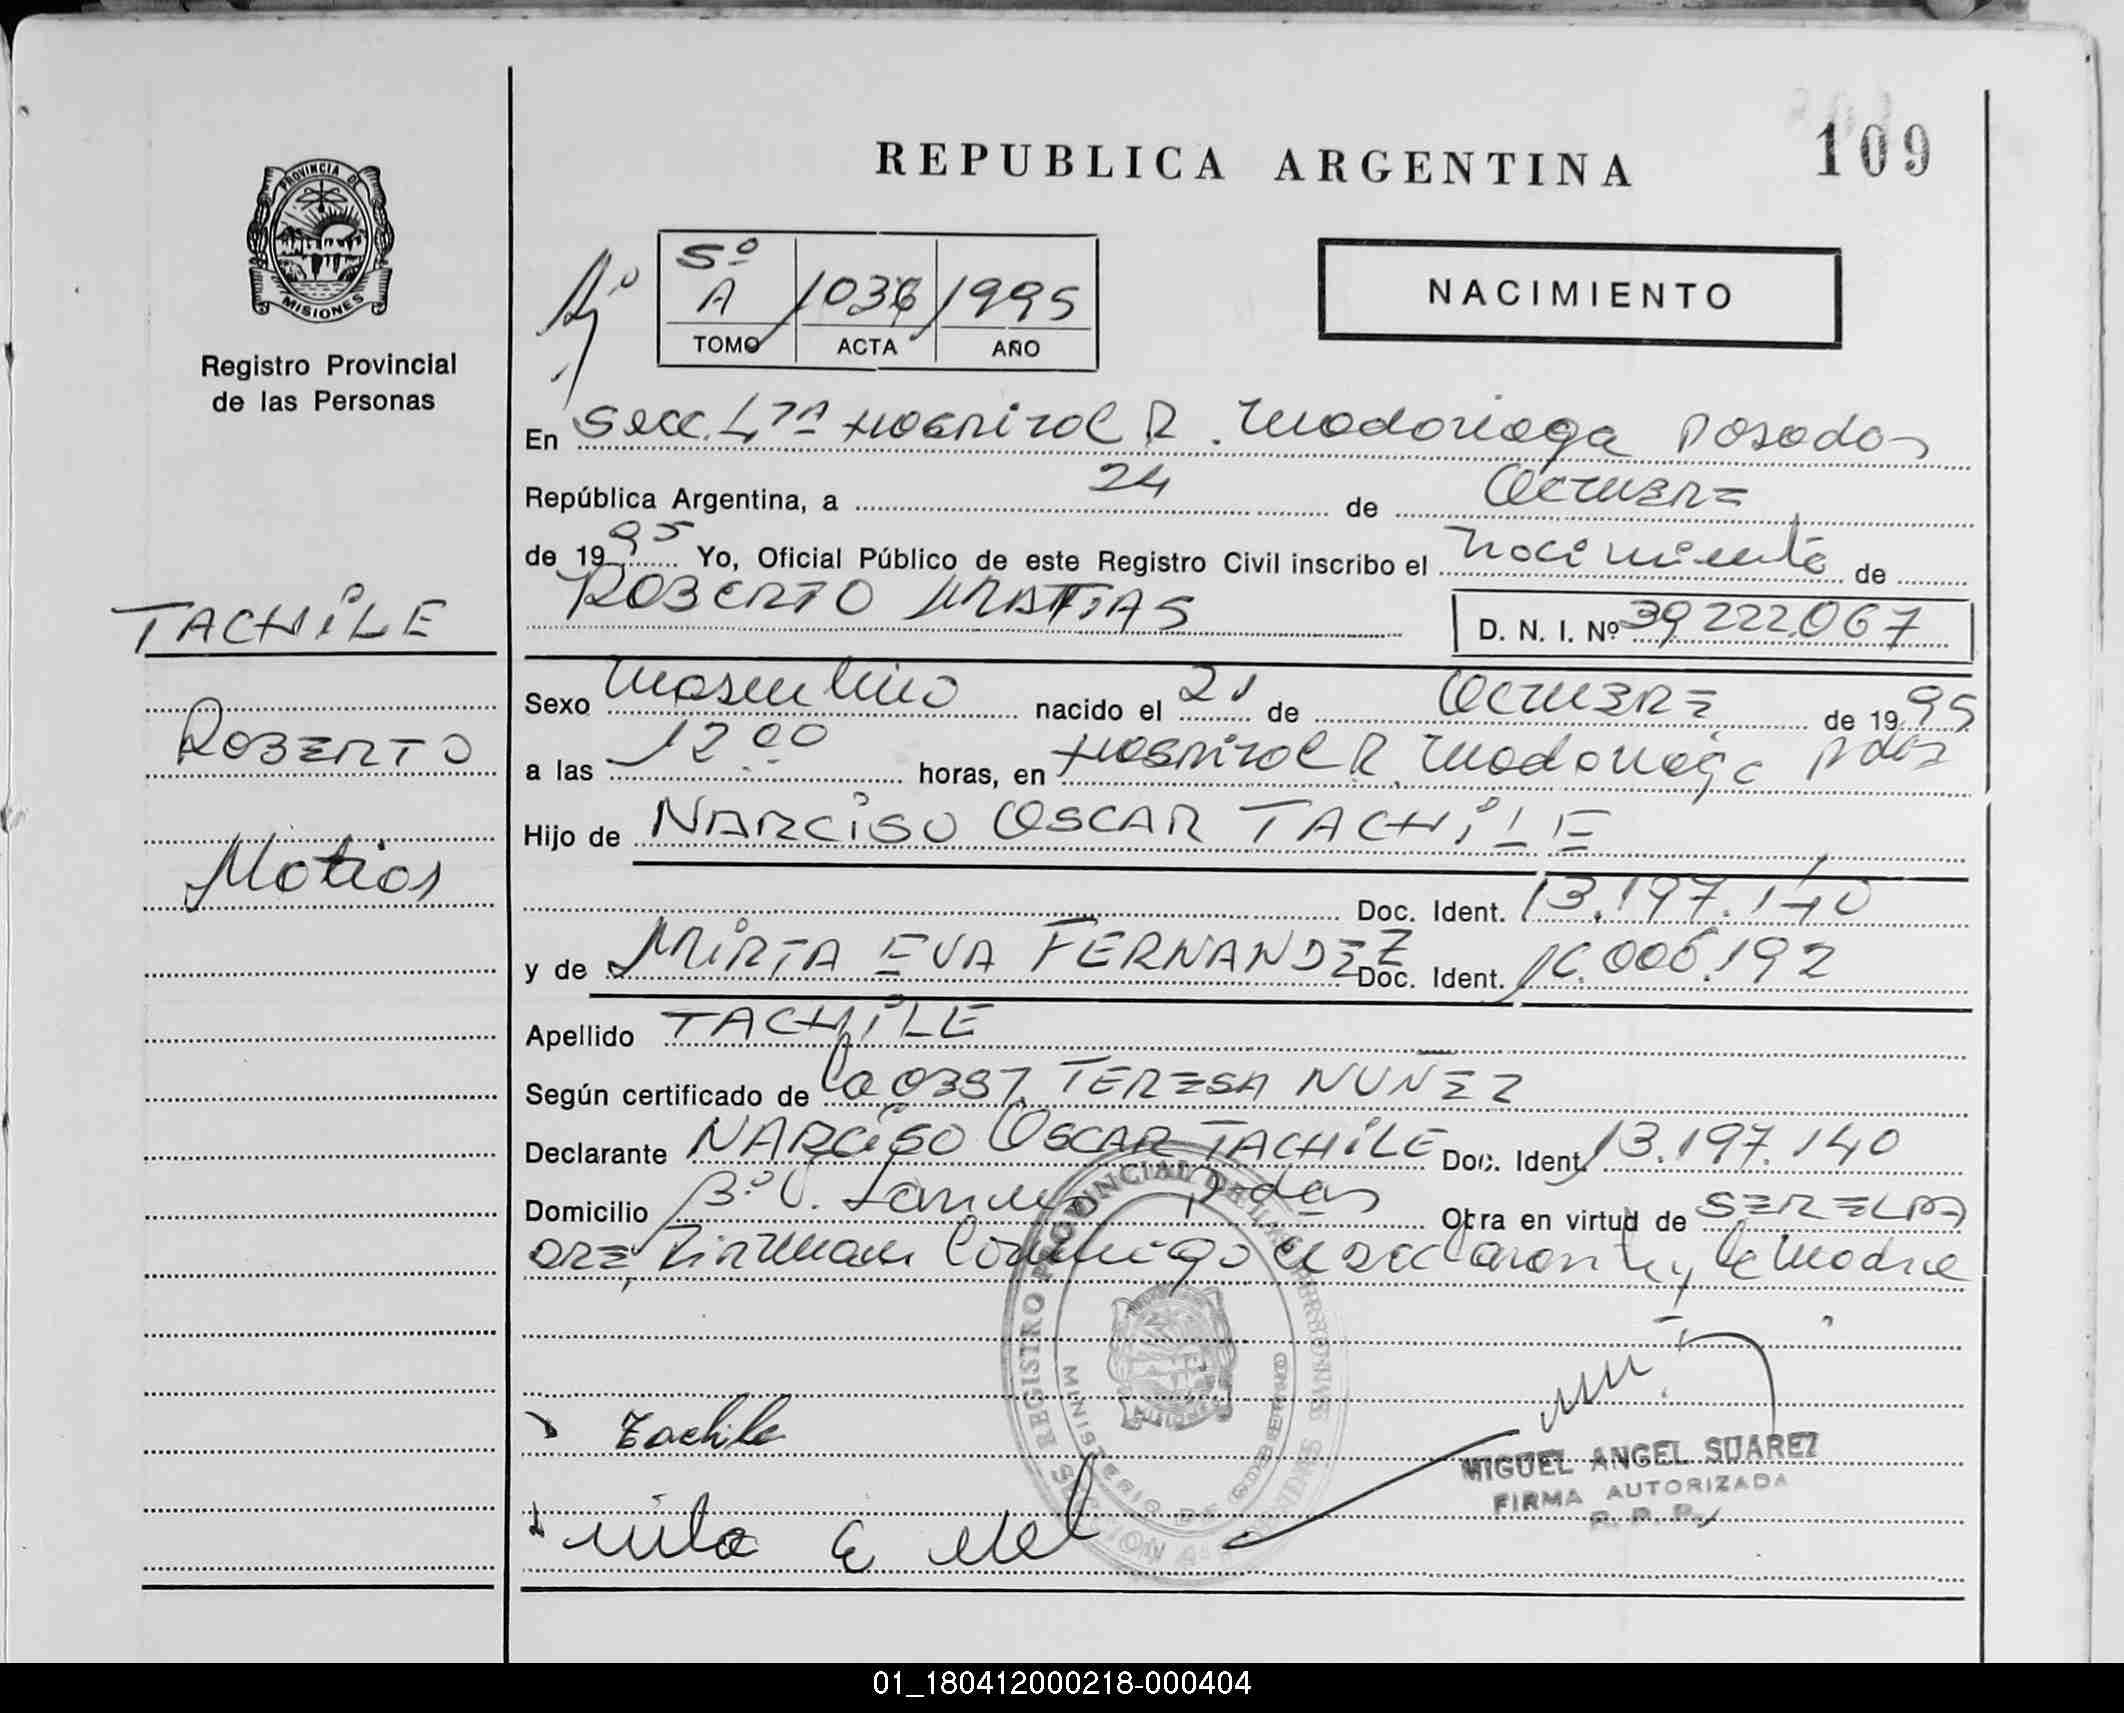 REPUBLICA ARGENTINA
109
PROVINCIA DE MISIONES
Registro Provincial
de las Personas
5º A 1036 1995
TOMO ACTA AÑO
NACIMIENTO
En Secc. 4TA Hospital R. Madariaga Posadas
República Argentina, a 24 de OCTUBRE
de 1995 Yo, Oficial Público de este Registro Civil inscribo el Nacimiento de
ROBERTO MATIAS
D. N. I. Nº 39 222.067
TACHILE
ROBERTO
Matias
Sexo Masculino nacido el 21 de OCTUBRE de 1995
a las 12 00 horas, en Hospital R. Madariaga Pdas
Hijo de NARCISO OSCAR TACHILE
Doc. Ident. 13.197.140
y de MIRTA EVA FERNANDEZ Doc. Ident. 16.006.192
Apellido TACHILE
Según certificado de la OBST. TERESA NUÑEZ
Declarante NARCISO OSCAR TACHILE Doc. Ident. 13.197.140
Domicilio Bº V. Pdas Obra en virtud de SER EL PA
DRE, Firman Conmigo el declarante y la Madre
REGISTRO PROVINCIAL DE LAS PERSONAS
MINISTERIO DE GOBIERNO
Tachile
MIGUEL ANGEL SUAREZ
FIRMA AUTORIZADA
R. P. P.
01_180412000218-000404